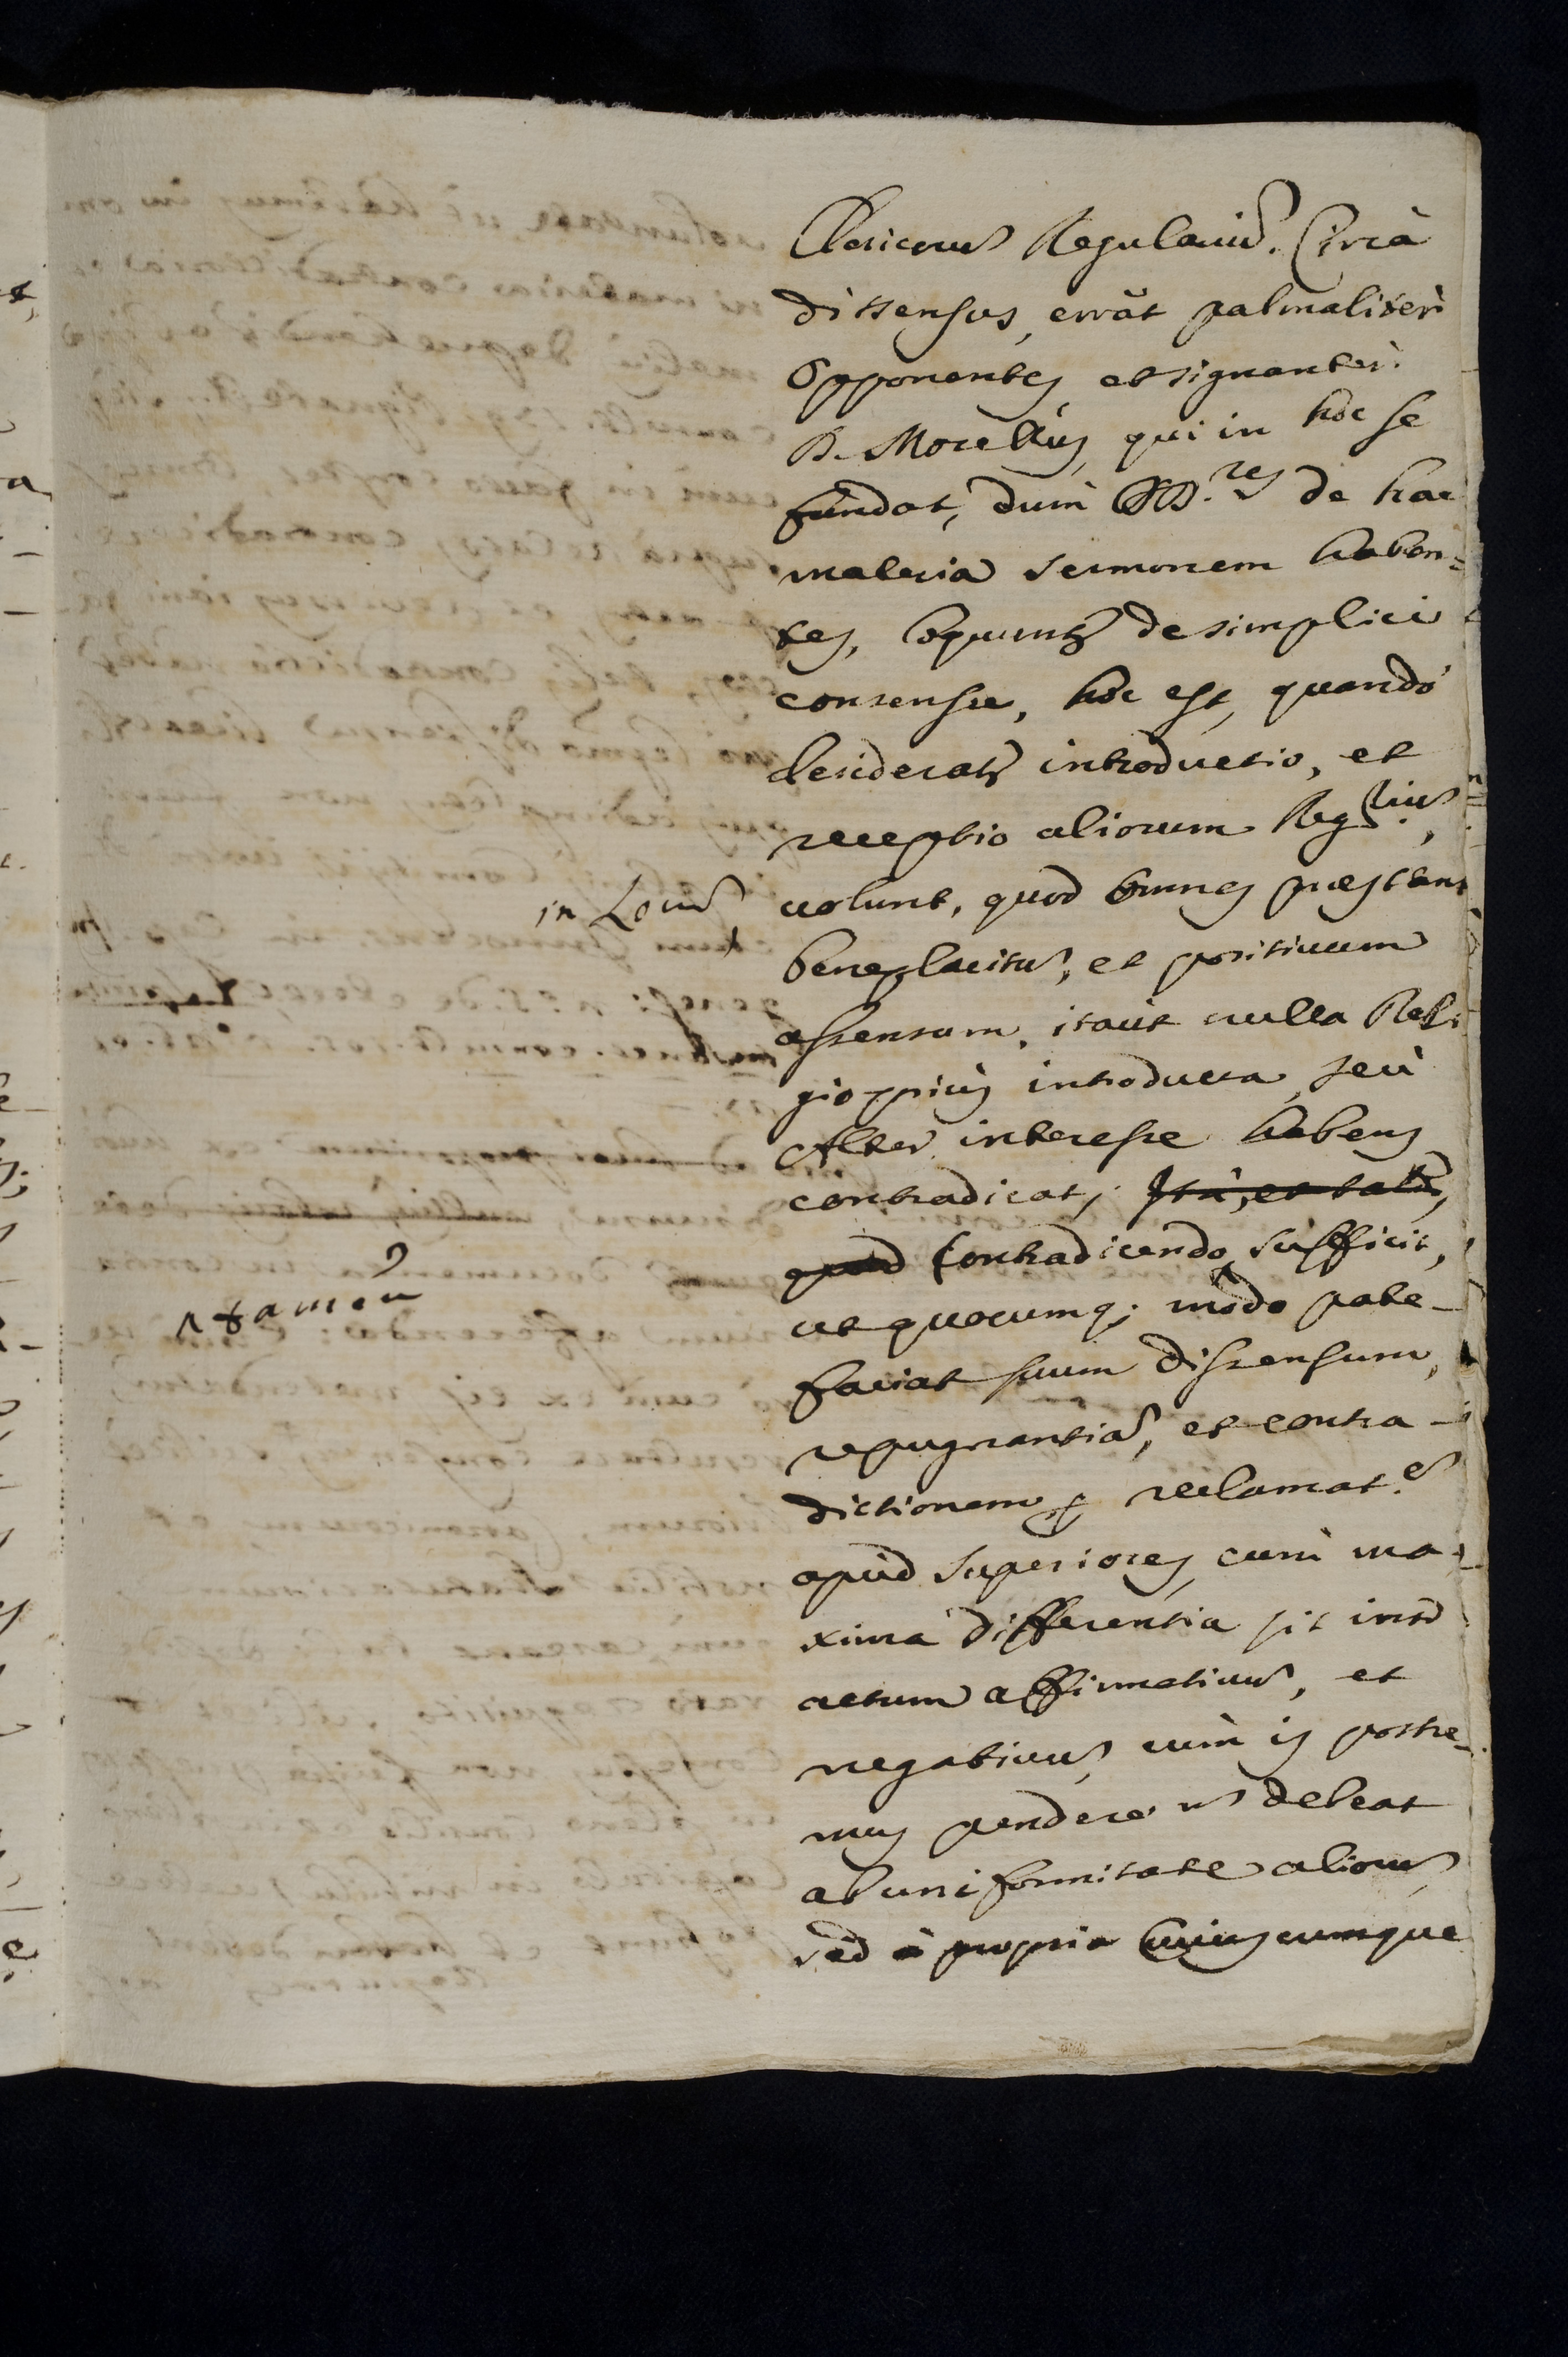 Clericorum Regularium. Circà
dissensus, erràt palmaliter
Opponentes, et signanter
D. Morellius, qui in hoc se
fundat, dum DD.res de hac
materia sermonem haben=
tes, loquuntur de simplici
consensu, hoc est, quandò
desideratur introductio, et
receptio aliorum Reg.rium,
in Locum
volunt, quod omnes prestent
beneplacitum, et positivum
assensum, itaut nulla Reli
gio prius introducta, seù
Alter interesse habens
contradicat; Ità, et taliter,
quod Contradicendo sufficit,
attamen
ut quocumq; modo pate-
faciat suum dissensum,
repugnantiam, et contra-
dictionem reclamat.e
apud Superiores, cum ma-
xima differentia sit inter
actum affirmativum, et
negativum, cum is postre-
mus pendere non debeat
ab uniformitate aliorum
sed à propria Cuiuscumque